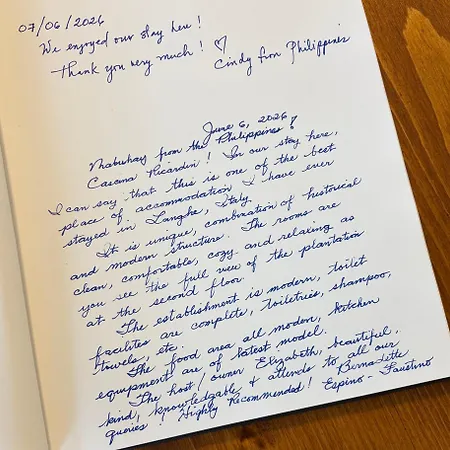 07/06/2026
We enjoyed our stay here!
Thank you very much! ♡
Cindy from Philippines
June 6, 2026
Mabuhay from the Philippines!
Cascina Ricardin! In our stay here,
I can say that this is one of the best
place of accommodation I have ever
stayed in Langhe, Italy.
It is unique, combination of historical
and modern structure. The rooms are
clean, comfortable, cozy and relaxing as
you see the full view of the plantation
at the second floor.
The establishment is modern, toilet
facilities are complete, toiletries, shampoo,
towels, etc.
The food area all modern, kitchen
equipments are of latest model.
The host/owner Elizabeth, beautiful,
kind, knowledgable & attends to all our
queries! Highly Recommended! Bernadette
Espino-Faustino